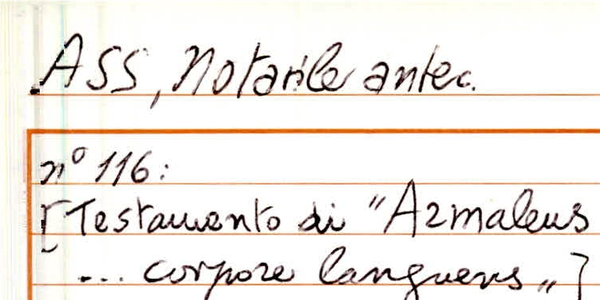 ASS, Notarile antec.
n° 116:
[Testamento di "Azmaleus
... corpore languens„]